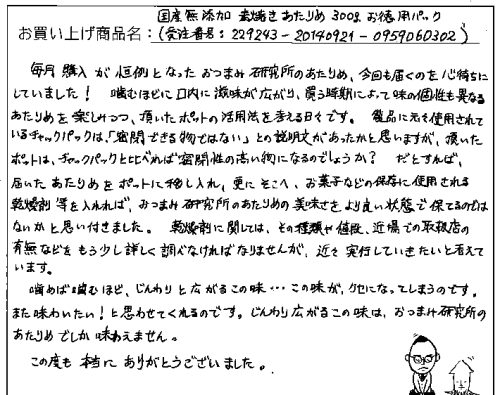 国産無添加 素焼きあたりめ 300g お徳用パック
お買い上げ商品名：(受注番号：229243-20140921-0959060302)
毎月購入が恒例となったおつまみ研究所のあたりめ、今回も届くのを心待ちに
していました！ 噛むほどに口内に滋味が広がり、買う時期によって味の個性も異なる
あたりめを楽しみつつ、頂いたポットの活用法を考える日々です。 製品に元々使用されて
いるチャックパックは、「密閉できる物ではない」との説明文があったかと思いますが、頂いた
ポットは、チャックパックと比べれば密閉性の高い物になるのでしょうか？ だとすれば、
届いたあたりめをポットに移し入れ、更にそこへ、お菓子などの保存に使用される
乾燥剤等を入れれば、おつまみ研究所のあたりめの美味さをより良い状態で保てるのでは
ないかと思い付きました。 乾燥剤に関しては、その種類や値段、近場での取扱店の
有無などをもう少し詳しく調べなければなりませんが、近々実行していきたいと考えて
います。
噛めば噛むほど、じんわりと広がるこの味…この味が、クセになってしまうのです。
また味わいたい！と思わせてくれるのです。じんわり広がるこの味は、おつまみ研究所の
あたりめでしか味わえません。
この度も本当にありがとうございました。